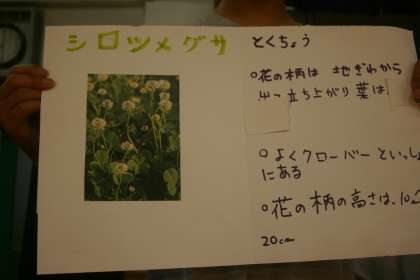 シロツメグサ
とくちょう
○花の柄は 地ぎわから
立ち上がり 葉は
○よくクローバーといっし
にある
○花の柄の高さは、10
20cm